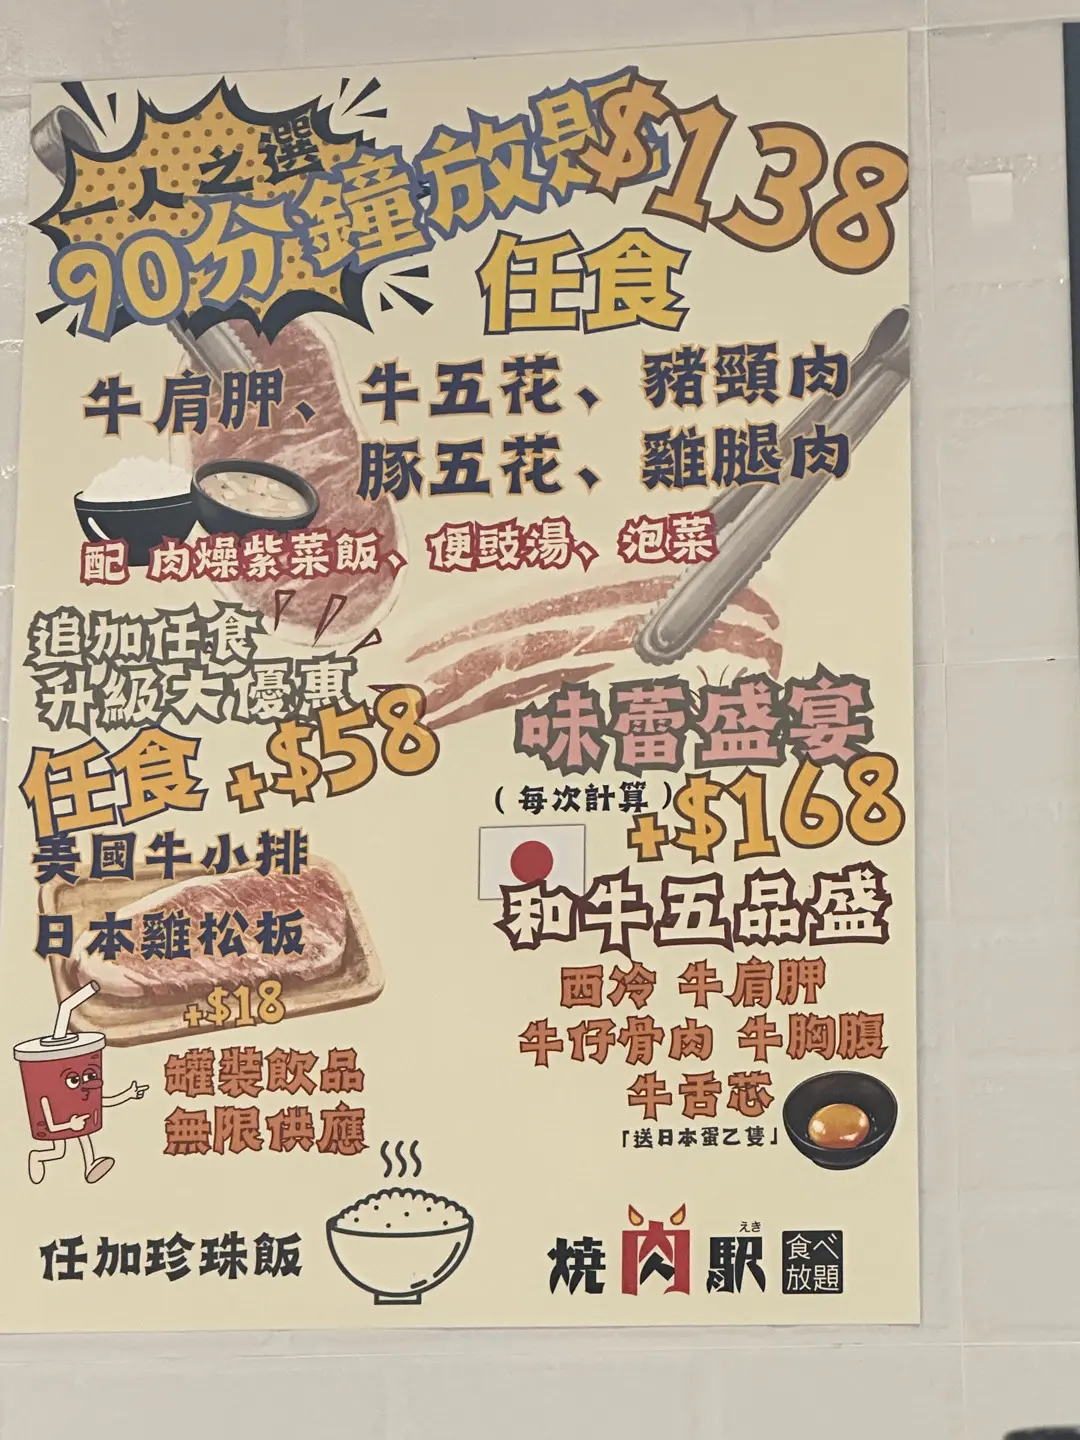 一人之選
90分鐘放題$138
任食
牛肩胛、牛五花、豬頸肉
豚五花、雞腿肉
配 肉燥紫菜飯、便豉湯、泡菜
追加任食
升級大優惠
任食+$58
美國牛小排
日本雞松板
+$18
罐裝飲品
無限供應
任加珍珠飯
味蕾盛宴
(每次計算)+$168
和牛五品盛
西冷 牛肩胛
牛仔骨肉 牛胸腹
牛舌芯
「送日本蛋乙隻」
えき
燒肉駅 食べ
放題